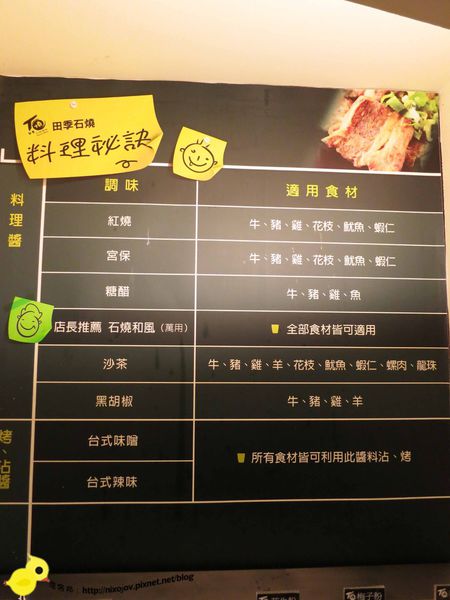 田季石燒
料理秘訣
調味 適用食材
料理醬
紅燒 牛、豬、雞、花枝、魷魚、蝦仁
宮保 牛、豬、雞、花枝、魷魚、蝦仁
糖醋 牛、豬、雞、魚
店長推薦 石燒和風(萬用) 全部食材皆可適用
沙茶 牛、豬、雞、羊、花枝、魷魚、蝦仁、螺肉、龍珠
黑胡椒 牛、豬、雞、羊
烤、沾醬
台式味噌 所有食材皆可利用此醬料沾、烤
台式辣味
http://nixojov.pixnet.net/blog
梅子粉